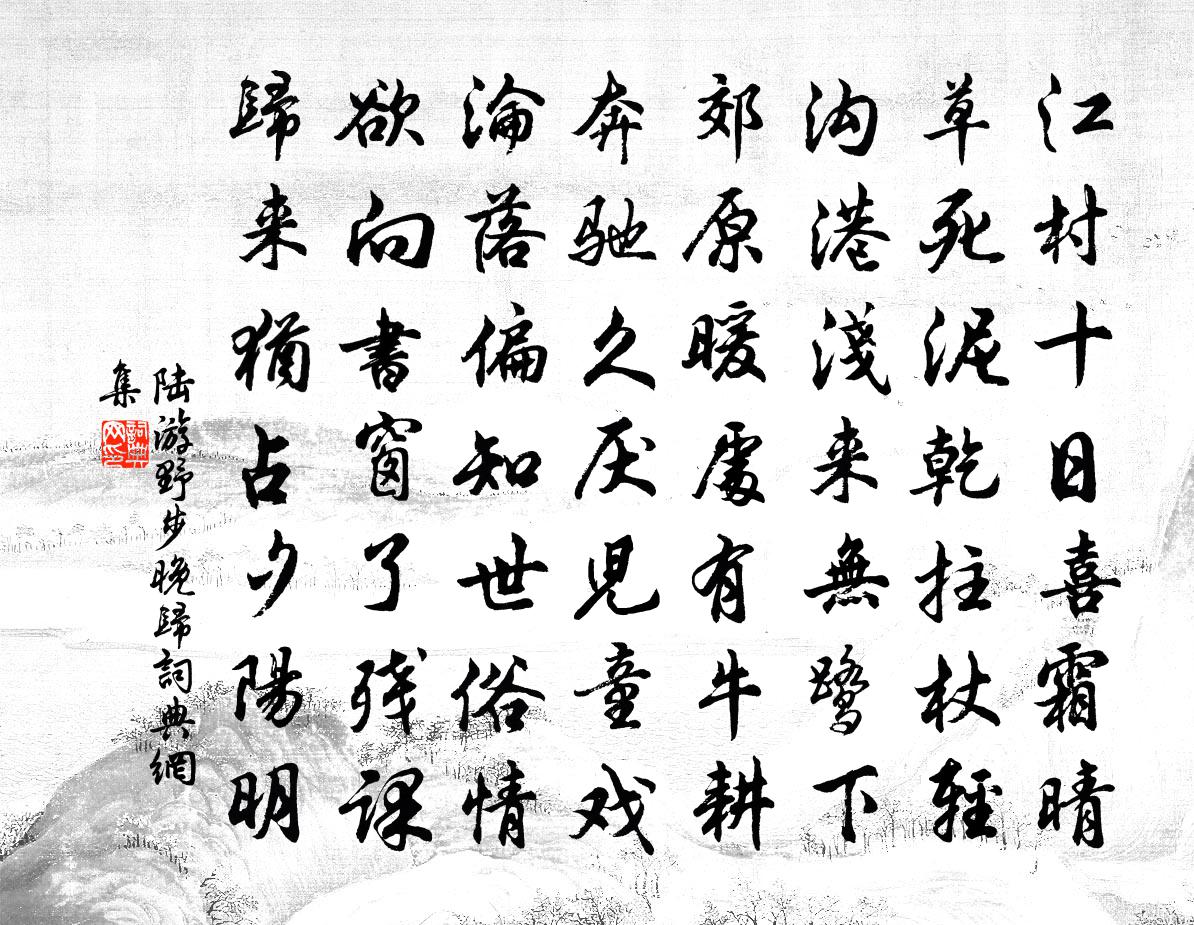 江村十日喜霜晴
草死泥乾拄杖輕
沟港淺来無鹭下
郊原暖處有牛耕
奔馳久厌児童戏
淪落偏知世俗情
欲向書窗了残課
歸来猶占夕陽明
陆游野步晚歸詞典網
集
詞典
网